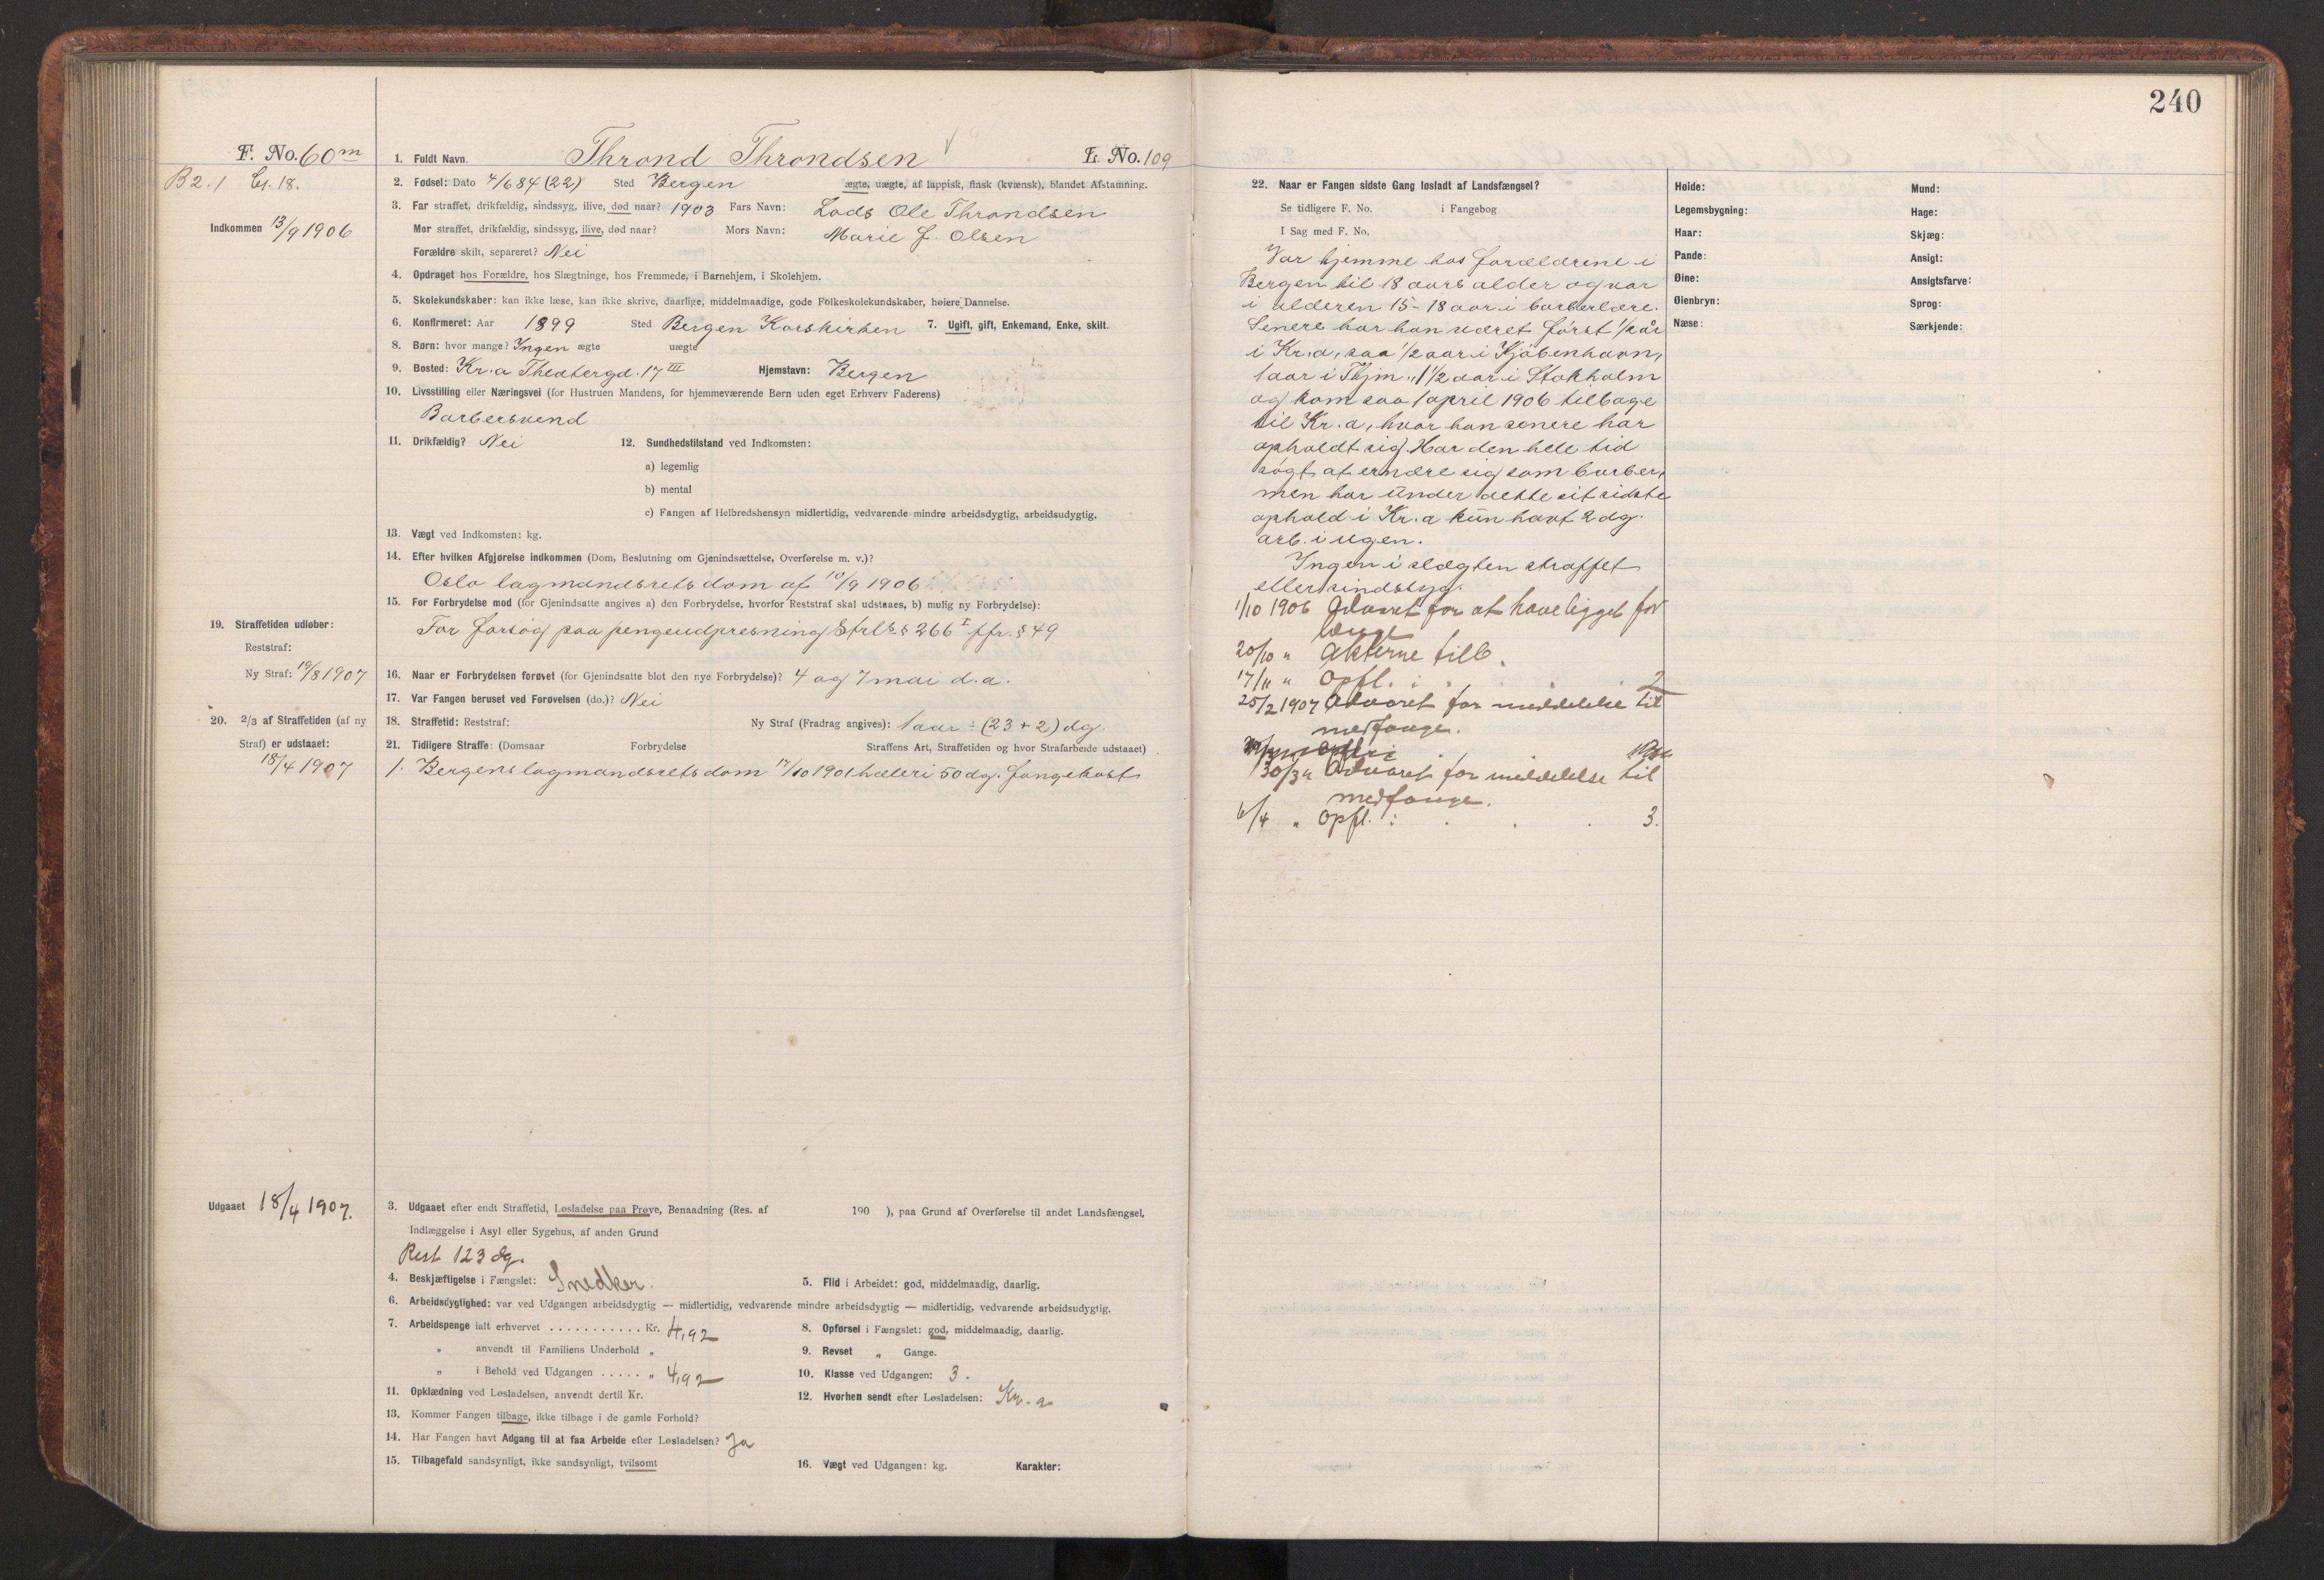 240
F. No. 60m
B 2. 1 Cl. 18.
Indkommen 13/9 1906
1. Fuldt Navn. Thrond Throndsen L. No. 109
2. Fødsel: Dato 4/6 84 (22) Sted Bergen ægte, uægte, af lappisk, finsk (kvænsk), blandet Afstamning.
3. Far straffet, drikfældig, sindssyg, ilive, død naar? 1903 Fars Navn: Lods Ole Throndsen
Mor straffet, drikfældig, sindssyg, ilive, død naar? Mors Navn: Marie J. Olsen
Forældre skilt, separeret? Nei
4. Opdraget hos Forældre, hos Slægtninge, hos Fremmede, i Barnehjem, i Skolehjem.
5. Skolekundskaber: kan ikke læse, kan ikke skrive, daarlige, middelmaadige, gode Folkeskolekundskaber, høiere Dannelse.
6. Konfirmeret: Aar 1899 Sted Bergen Korskirken 7. Ugift, gift, Enkemand, Enke, skilt.
8. Børn: hvor mange? Ingen ægte uægte
9. Bosted: Kr.a Theatergd. 17 III Hjemstavn: Bergen
10. Livsstilling eller Næringsvei (for Hustruen Mandens, for hjemmeværende Børn uden eget Erhverv Faderens)
Barbersvend
11. Drikfældig? Nei 12. Sundhedstilstand ved Indkomsten:
a) legemlig
b) mental
c) Fangen af Helbredshensyn midlertidig, vedvarende mindre arbeidsdygtig, arbeidsudygtig.
13. Vægt ved Indkomsten: kg.
14. Efter hvilken Afgjørelse indkommen (Dom, Beslutning om Gjenindsættelse, Overførelse m. v.)?
Oslo lagmandsrets dom af 10/9 1906
15. For Forbrydelse mod (for Gjenindsatte angives a) den Forbrydelse, hvorfor Reststraf skal udstaaes, b) mulig ny Forbrydelse):
For forsøg paa pengeudpresning Strls § 266 I jfr. § 49
19. Straffetiden udløber:
Reststraf:
Ny Straf: 19/8 1907
16. Naar er Forbrydelsen forøvet (for Gjenindsatte blot den nye Forbrydelse)? 4 og 7 mai d.a.
17. Var Fangen beruset ved Forøvelsen (do.)? Nei
20. 2/3 af Straffetiden (af ny
Straf) er udstaaet:
18/4 1907
18. Straffetid: Reststraf: Ny Straf (Fradrag angives): 1 aar ÷ (23 + 2) dg.
21. Tidligere Straffe: (Domsaar Forbrydelse Straffens Art, Straffetiden og hvor Strafarbeide udstaaet)
1. Bergens lagmandsrets dom 17/10 1901 hæleri 50 dg. fangekost
Udgaaet 18/4 1907.
3. Udgaaet efter endt Straffetid, Løsladelse paa Prøve, Benaadning (Res. af 190 ), paa Grund af Overførelse til andet Landsfængsel,
Indlæggelse i Asyl eller Sygehus, af anden Grund
Rest 123 dg.
4. Beskjæftigelse i Fængslet: Snedker. 5. Flid i Arbeidet: god, middelmaadig, daarlig.
6. Arbeidsdygtighed: var ved Udgangen arbeidsdygtig — midlertidig, vedvarende mindre arbeidsdygtig — midlertidig, vedvarende arbeidsudygtig.
7. Arbeidspenge ialt erhvervet ........... Kr. 4,92 8. Opførsel i Fængslet: god, middelmaadig, daarlig.
„ anvendt til Familiens Underhold „ 9. Revset „ Gange.
„ i Behold ved Udgangen ..... „ 4,92 10. Klasse ved Udgangen: 3.
11. Opklædning ved Løsladelsen, anvendt dertil Kr. 12. Hvorhen sendt efter Løsladelsen: Kr.a
13. Kommer Fangen tilbage, ikke tilbage i de gamle Forhold?
14. Har Fangen havt Adgang til at faa Arbeide efter Løsladelsen? Ja
15. Tilbagefald sandsynligt, ikke sandsynligt, tvilsomt 16. Vægt ved Udgangen: kg. Karakter:
22. Naar er Fangen sidste Gang løsladt af Landsfængsel?
Se tidligere F. No. i Fangebog
I Sag med F. No.
Var hjemme hos forældrene i
Bergen til 18 aars alder og var
i alderen 15-18 aar i barberlære.
Senere har han været først 1/2 år
i Kr.a, saa 1/2 aar i Kjøbenhavn,
1 aar i Thjm., 1 1/2 aar i Stokholm
og kom saa 1 april 1906 tilbage
til Kr.a, hvor han senere har
opholdt sig. Har den hele tid
søgt at ernære sig som barber,
men har under dette sit sidste
ophold i Kr.a kun havt 2 dg.
arb. i ugen.
Ingen i slægten straffet
eller sindssyg.
1/10 1906 Advaret for at have ligget for
længe
20/10 " Akterne tilb.
17/11 " Opfl. i . . . 2
25/2 1907 Advaret for meddelelse til
medfange.
30/3 " Advaret for meddelelse til
medfange.
6/4 " Opfl. i . . . 3.
Høide: Mund:
Legemsbygning: Hage:
Haar: Skjæg:
Pande: Ansigt:
Øine: Ansigtsfarve:
Øienbryn: Sprog:
Næse: Særkjende: